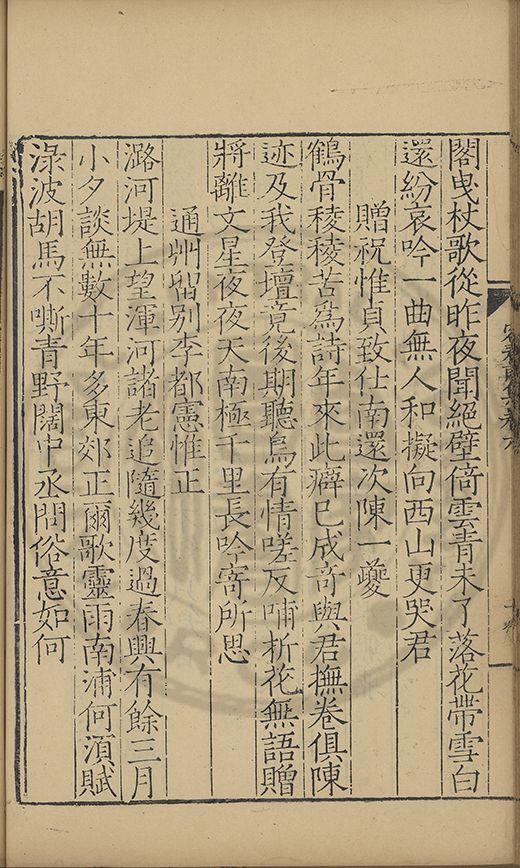 閣曳杖歌從昨夜聞絕壁倚雲青未了落花帶雪白
還紛哀吟一曲無人和擬向西山更哭君
贈祝惟貞致仕南還次陳一夔
鶴骨稜稜苦爲詩年來此癖已成奇與君撫卷俱陳
迹及我登壇竟後期聽烏有情嗟反哺折花無語贈
將離文星夜夜天南極千里長吟寄所思
通州留別李都憲惟正
潞河堤上望渾河諸老追隨幾度過春興有餘三月
小夕談無數十年多東郊正爾歌靈雨南浦何須賦
淥波胡馬不嘶青野闊中丞問俗意如何